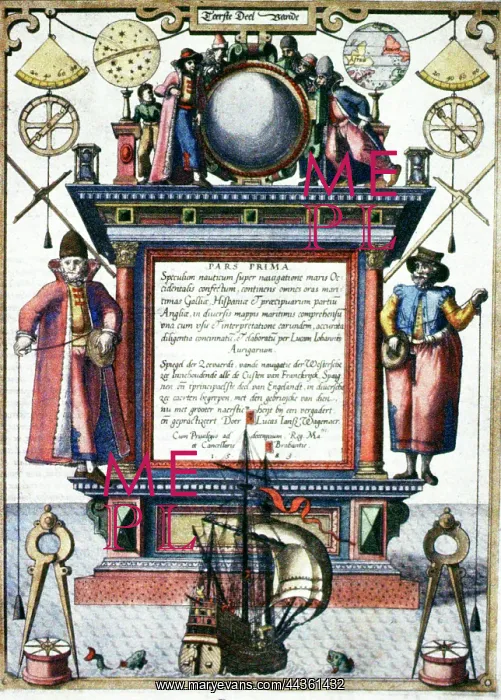 Teerste Deel
PARS PRIMA
Speculum nauticum super navigatione maris Oc-
cidentalis confectum, continens omnes oras mari-
timas Galliæ, Hispaniæ & præcipuarum partiū
Angliæ, in diversis mappis maritimis comprehensū
una cum usu & interpretatione earundem, accurata
diligentia concinnatū & elaboratū per Lucam Iohannis
Aurigarium.
Spiegel der Zeevaerdt, vande navigatie der Westersche
zee Innehoudende alle de Custen van Franckryck Spaig-
nen eñ t'principaelste deel van Engelandt, in diversche
zee caerten begrepen, met den gebruycke van dien,
nu met grooter naersticheyt by een vergadert
en gepractizeert Door Lucas Iansz Wagenaer
Cum Privilegio ad decennium Reg. Ma.
et Cancellarie Brabantie.
1 5 8
ME
PL
ME
PL
www.maryevans.com/44361492